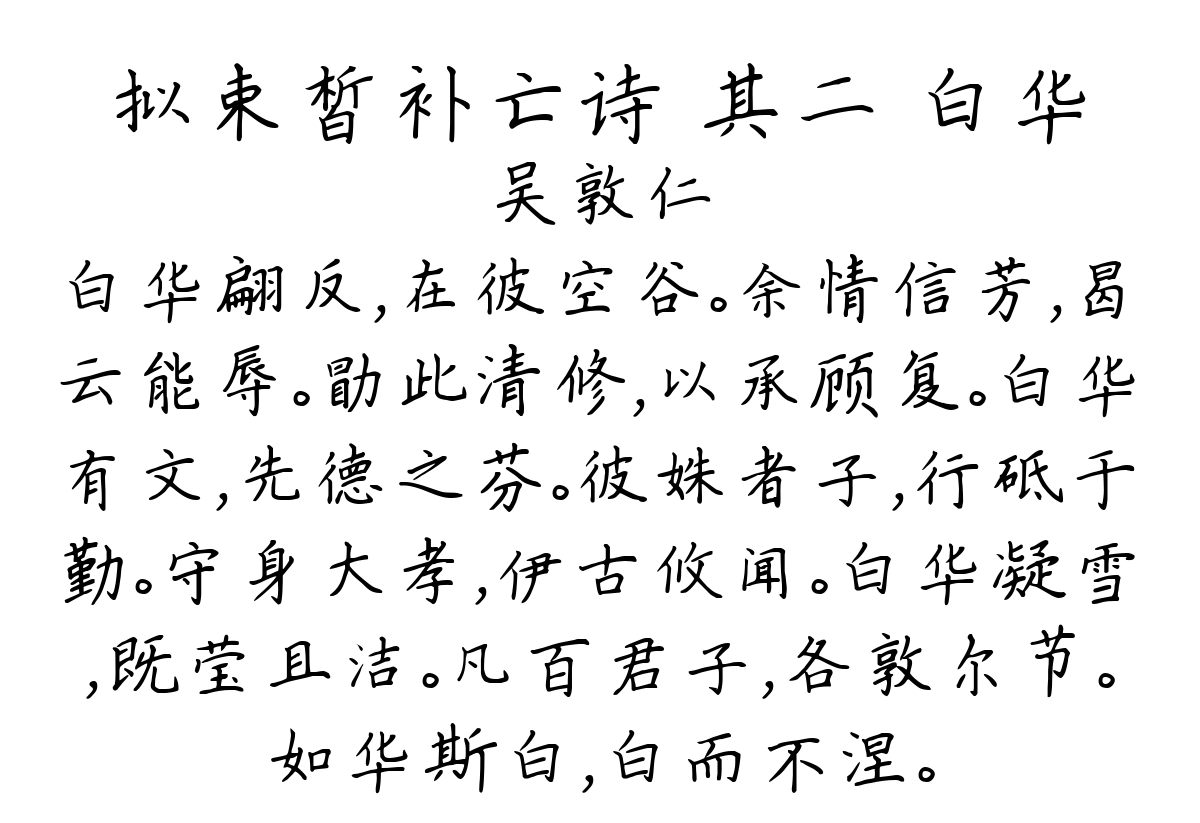 拟束皙补亡诗 其二 白华
吴敦仁
白华翩反,在彼空谷。余情信芳,曷
云能辱。勖此清修,以承顾复。白华
有文,先德之芬。彼姝者子,行砥于
勤。守身大孝,伊古攸闻。白华凝雪
,既莹且洁。凡百君子,各敦尔节。
如华斯白,白而不涅。